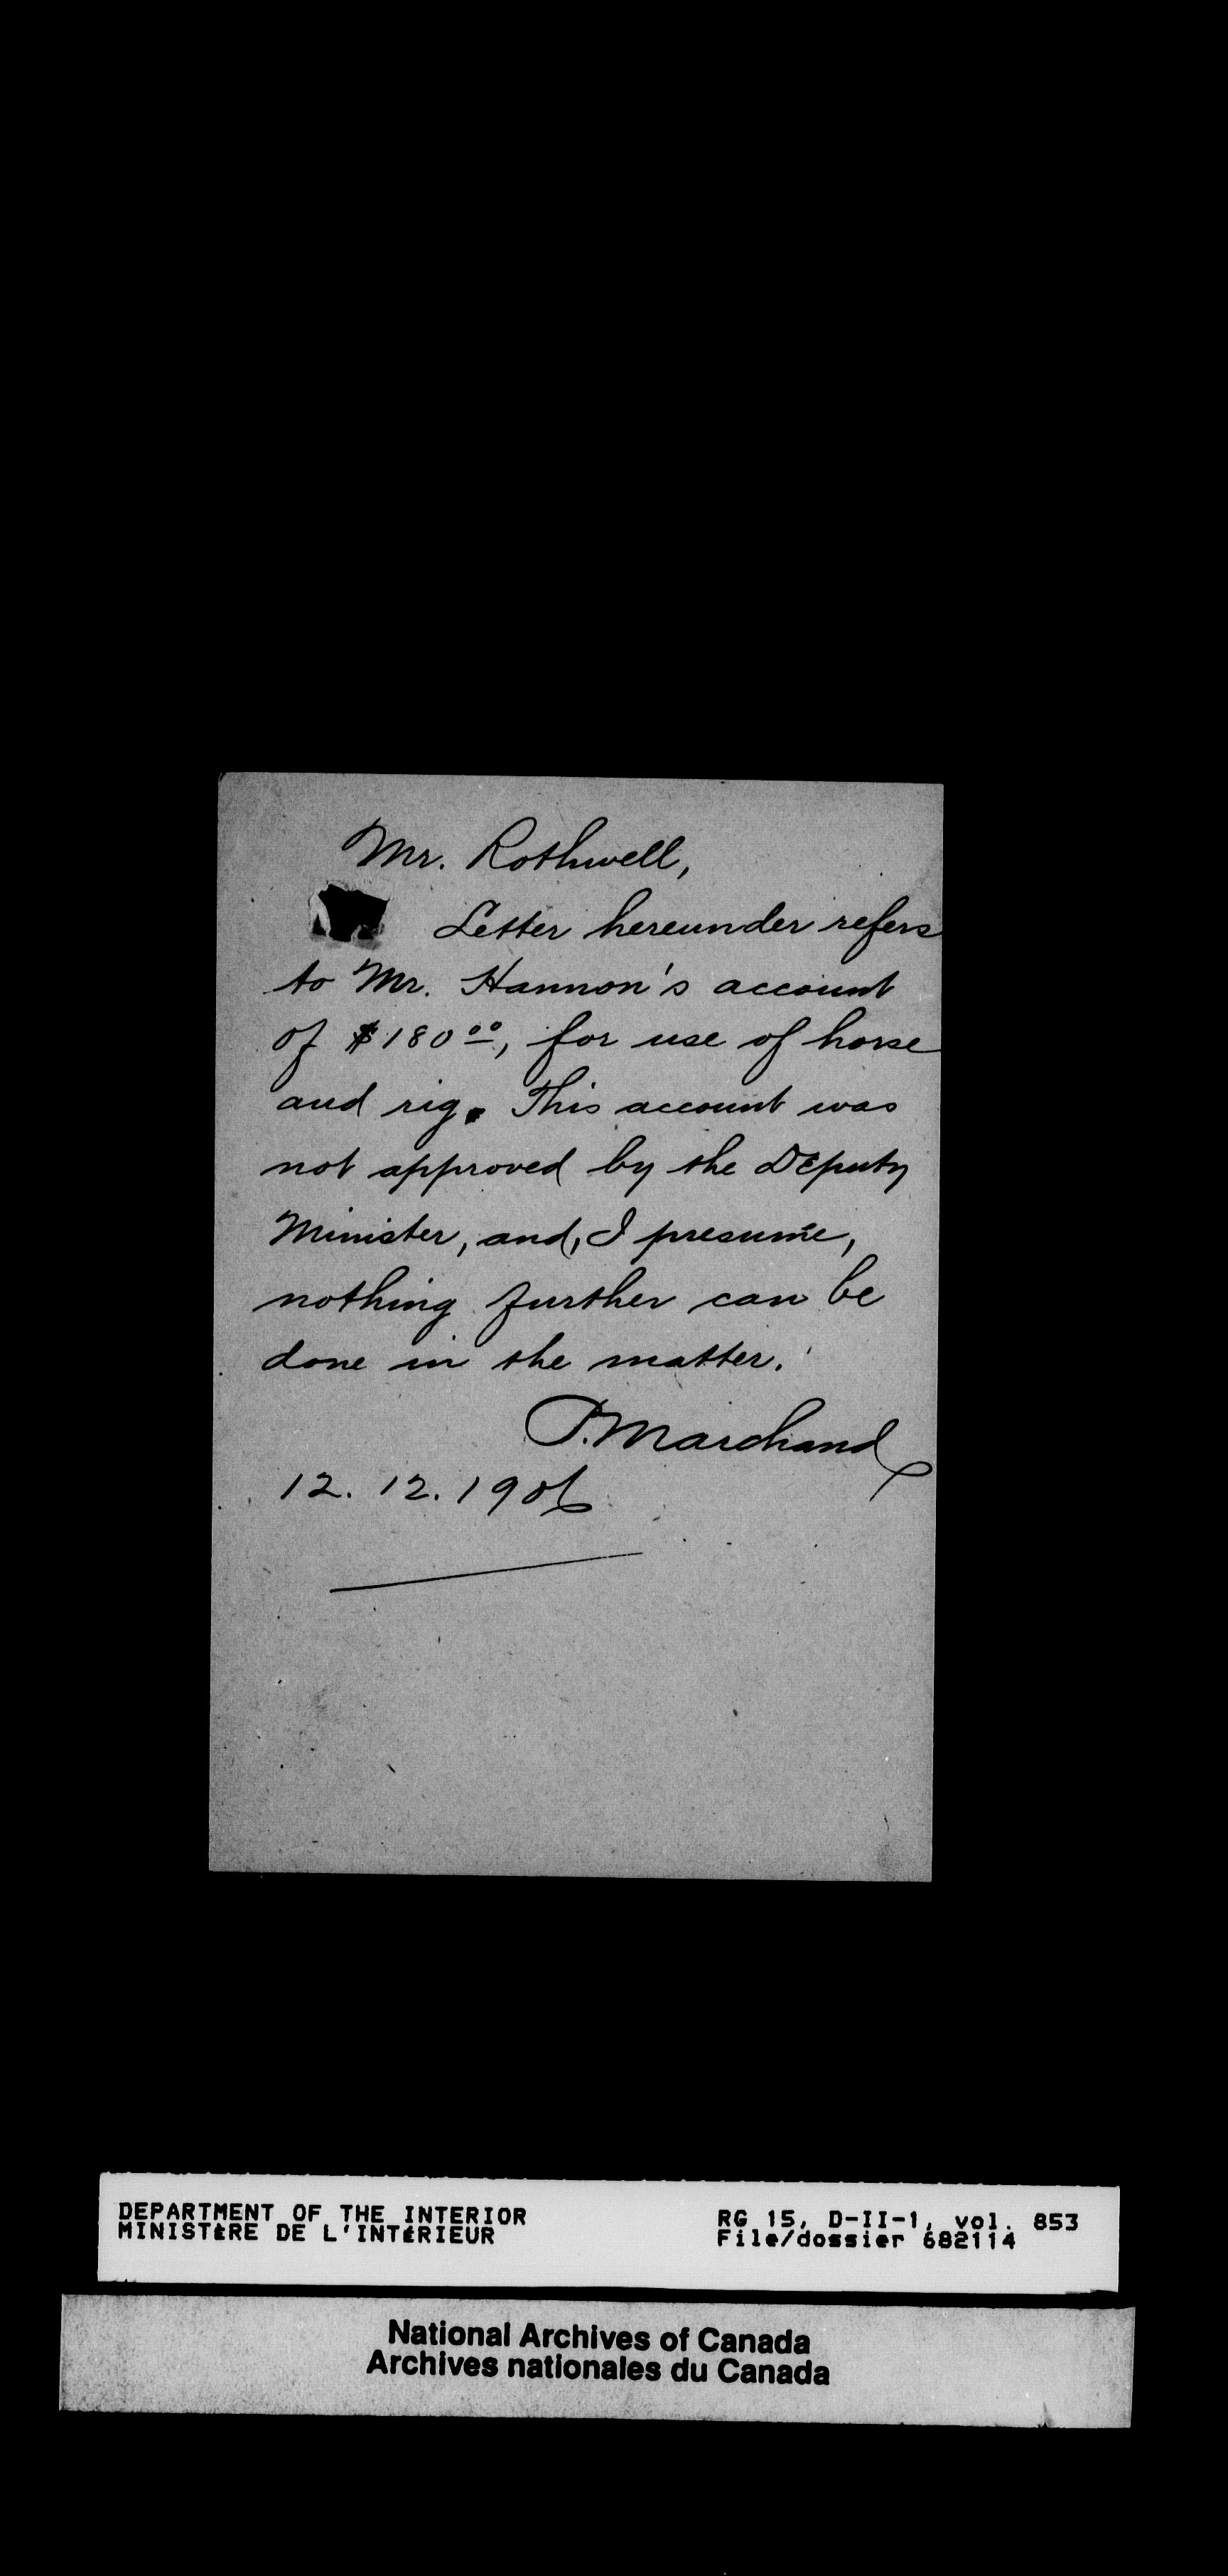 Mr. Rothwell,
Letter hereunder refers
to Mr. Hannon's account
of $180.00, for use of horse
and rig. This account was
not approved by the Deputy
Minister, and, I presume,
nothing further can be
done in the matter.
P. Marchand
12. 12. 1906
DEPARTMENT OF THE INTERIOR
MINISTÈRE DE L'INTÉRIEUR
RG 15, D-II-1, vol. 853
File/dossier 682114
National Archives of Canada
Archives nationales du Canada